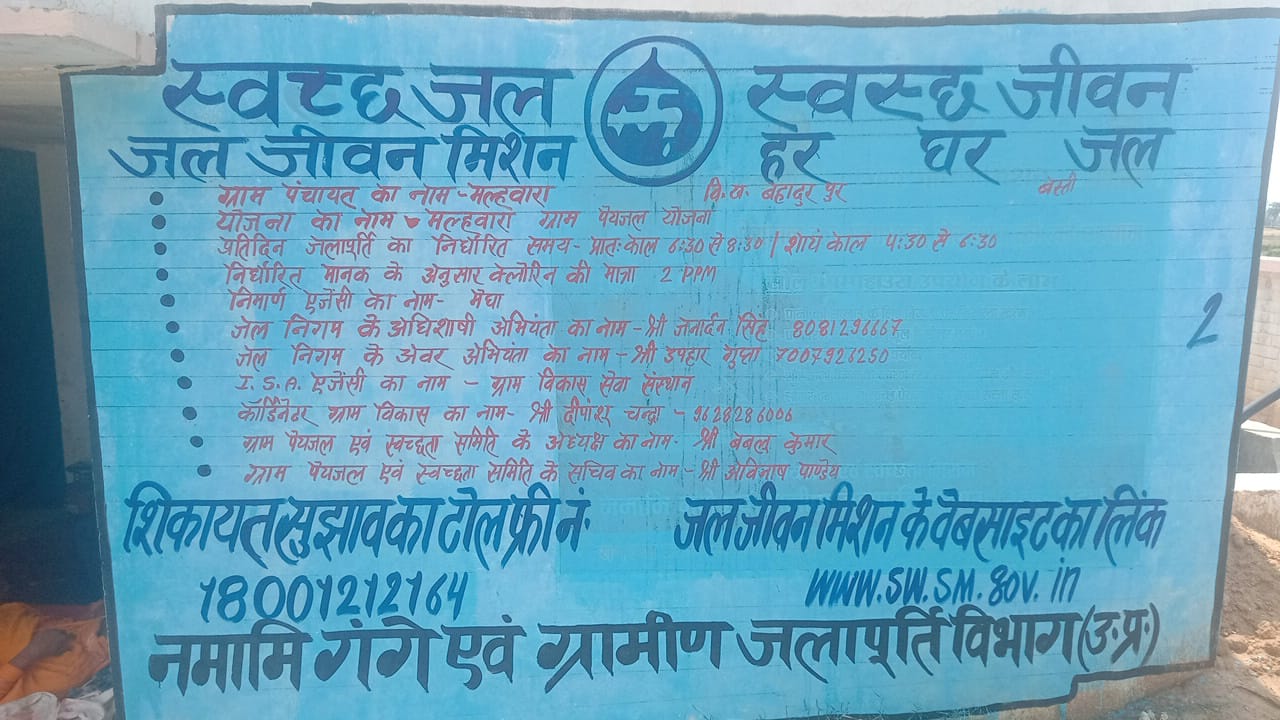 स्वच्छ जल स्वस्छ जीवन
जल जीवन मिशन हर घर जल
ग्राम पंचायत का नाम - मल्हवारा वि.ख. बहादुर पुर बस्ती
योजना का नाम - मल्हवारा ग्राम पेयजल योजना
प्रतिदिन जलापूर्ति का निर्धारित समय - प्रातः काल 6:30 से 8:30 / शायं काल 4:30 से 6:30
निर्धारित मानक के अनुसार क्लोरिन की मात्रा 2 PPM
निमार्ण एजेंसी का नाम - मेघा
जल निगम के अधिशाषी अभियंता का नाम - श्री जनार्दन सिंह 8081296667
2
जल निगम के अवर अभियंता का नाम - श्री उपहार गुप्ता 7007926250
I. S. A. एजेंसी का नाम - ग्राम विकास सेवा संस्थान
कॉर्डिनेटर ग्राम विकास का नाम - श्री दीपांशू चन्द्रा - 9628286006
ग्राम पेयजल एवं स्वच्छता समिति के अध्यक्ष का नाम - श्री बबलू कुमार
ग्राम पेयजल एवं स्वच्छता समिति के सचिव का नाम - श्री अविनाष पाण्डेय
शिकायत सुझाव का टोल फ्री नं. जल जीवन मिशन के वेबसाइट का लिंक
18001212164 www.sw.sm.gov.in
नमामि गंगे एवं ग्रामीण जलापूर्ति विभाग (उ.प्र.)